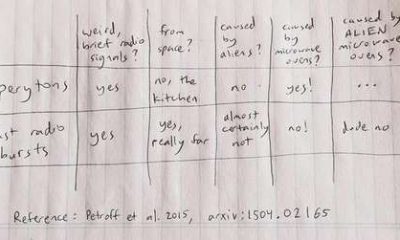 weird,
brief radio
signals?
from
space?
caused
by
aliens?
caused
by
microwave
ovens?
caused by
ALIEN
microwave
ovens?
perytons
yes
no, the
kitchen
no
yes!
...
ast radio
bursts
yes
yes,
really far
almost
certainly
not
no!
dude no
Reference: Petroff et al. 2015, arxiv:1504.02165